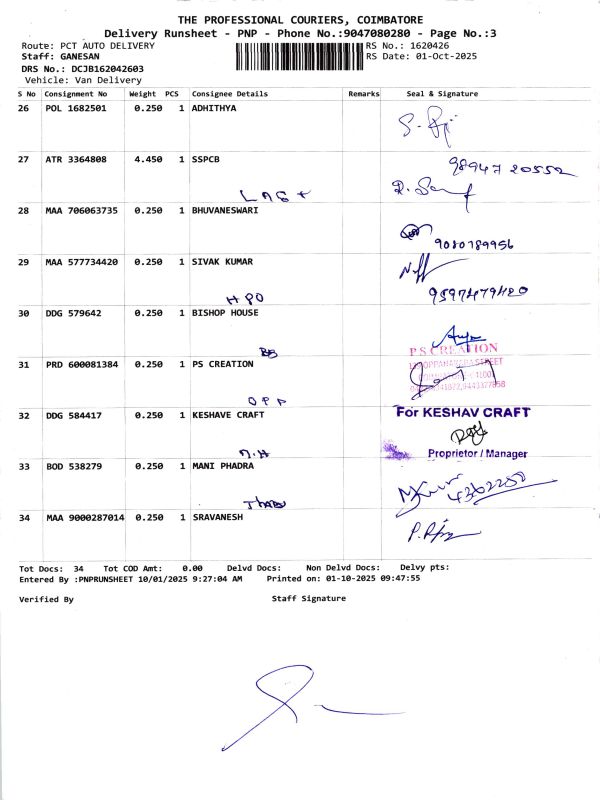 THE PROFESSIONAL COURIERS, COIMBATORE
Delivery Runsheet - PNP - Phone No.:9047080280 - Page No.:3
Route: PCT AUTO DELIVERY RS No.: 1620426
Staff: GANESAN RS Date: 01-Oct-2025
DRS No.: DCJB162042603
Vehicle: Van Delivery
S No Consignment No Weight PCS Consignee Details Remarks Seal & Signature
26 POL 1682501 0.250 1 ADHITHYA
27 ATR 3364808 4.450 1 SSPCB 98947 20552
28 MAA 706063735 0.250 1 BHUVANESWARI
9080789956
29 MAA 577734420 0.250 1 SIVAK KUMAR
HPO 9597479420
30 DDG 579642 0.250 1 BISHOP HOUSE
P S CREATION
31 PRD 600081384 0.250 1 PS CREATION
OPP
32 DDG 584417 0.250 1 KESHAVE CRAFT For KESHAV CRAFT
Proprietor / Manager
33 BOD 538279 0.250 1 MANI PHADRA
34 MAA 9000287014 0.250 1 SRAVANESH
Tot Docs: 34 Tot COD Amt: 0.00 Delvd Docs: Non Delvd Docs: Delvy pts:
Entered By :PNPRUNSHEET 10/01/2025 9:27:04 AM Printed on: 01-10-2025 09:47:55
Verified By Staff Signature